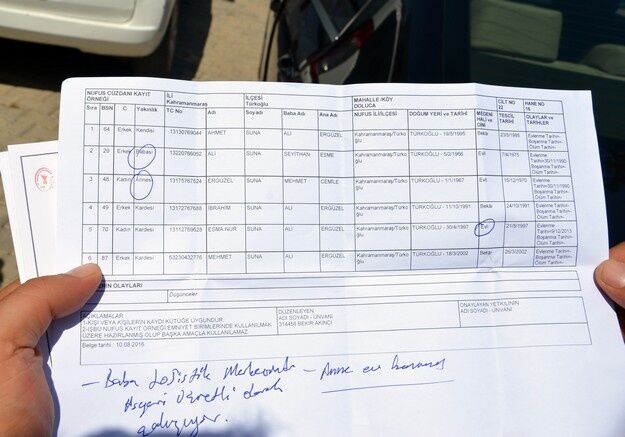 NUFUS CÜZDANI KAYIT ÖRNEĞİ İLİ Kahramanmaraş İLÇESİ Türkoğlu MAHALLE /KÖY DOLUCA CİLT NO 22 HANE NO 16
Sıra BSN C Yakınlık TC No Adı Soyadı Baba Adı Ana Adı NUFUS İLİ/İLÇESİ DOĞUM YERİ ve TARİHİ MEDENİ HALİ ve DİNİ TESCİL TARİHİ OLAYLAR ve TARİHLER
1 64 Erkek Kendisi 13130769044 AHMET SUNA ALİ ERGÜZEL Kahramanmaraş/Türkoğlu TÜRKOĞLU - 19/5/1995 Bekâr 23/5/1995 Evlenme Tarihi= Boşanma Tarihi= Ölüm Tarihi=
2 29 Erkek Babası 13220766052 ALİ SUNA SEYİTHAN ESME Kahramanmaraş/Türkoğlu TÜRKOĞLU - 5/2/1966 Evli 7/4/1975 Evlenme Tarihi=30/11/1990 Boşanma Tarihi= Ölüm Tarihi=
3 48 Kadın Annesi 13175767624 ERGÜZEL SUNA MEHMET CEMİLE Kahramanmaraş/Türkoğlu TÜRKOĞLU - 1/1/1967 Evli 15/12/1970 Evlenme Tarihi=30/11/1990 Boşanma Tarihi= Ölüm Tarihi=
4 49 Erkek Kardesi 13172767688 İBRAHİM SUNA ALİ ERGÜZEL Kahramanmaraş/Türkoğlu TÜRKOĞLU - 11/10/1991 Bekâr 24/10/1991 Evlenme Tarihi= Boşanma Tarihi= Ölüm Tarihi=
5 70 Kadın Kardesi 13112769628 ESMA NUR SUNA ALİ ERGÜZEL Kahramanmaraş/Türkoğlu TÜRKOĞLU - 30/4/1997 Evli 21/5/1997 Evlenme Tarihi=9/12/2013 Boşanma Tarihi= Ölüm Tarihi=
6 87 Erkek Kardesi 53230432776 MEHMET SUNA ALİ ERGÜZEL Kahramanmaraş/Türkoğlu TÜRKOĞLU - 18/3/2002 Bekâr 26/3/2002 Evlenme Tarihi= Boşanma Tarihi= Ölüm Tarihi=
ERİN OLAYLARI
Düşünceler
AÇIKLAMALAR
1-KİŞİ VEYA KİŞİLERİN KAYDI KÜTÜĞE UYGUNDUR.
2-İŞBU NUFUS KAYIT ÖRNEĞİ EMNİYET BİRİMLERİNDE KULLANILMAK
ÜZERE HAZIRLANMIŞ OLUP BAŞKA AMAÇLA KULLANILAMAZ
DÜZENLEYEN
ADI SOYADI - ÜNVANI
314456 BEKİR AKINCI
ONAYLAYAN YETKİLİNİN
ADI SOYADI - ÜNVANI
Belge tarihi : 10.08.2016
- Baba Lojistik Merkezinde
Asgari Ücretli olarak
çalışıyor.
- Anne ev hanımı